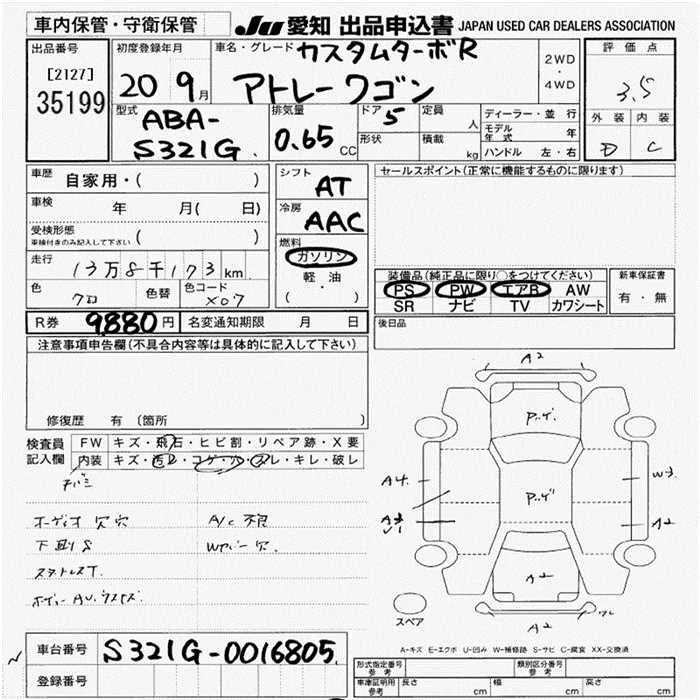 車内保管・守衛保管
JU 愛知 出品申込書 JAPAN USED CAR DEALERS ASSOCIATION
出品番号
[2127]
35199
初度登録年月
20 9月
車名・グレード カスタムターボR
アトレーワゴン
2WD
・
4WD
評価点
3.5
外装 内装
D C
型式
ABA-
S321G
排気量
0.65 CC
ドア 5
定員
人
形状
積載
kg
ディーラー・並行
モデル年式 年
ハンドル 左・右
車歴
自家用・( )
車検
年 月( 日)
受検形態
車検付きのみ記入して下さい ( )
走行
13万8千173km
色
クロ
色替
色コード
X07
シフト
AT
冷房
AAC
燃料
ガソリン
軽・油
( )
セールスポイント(正常に機能するものに限ります)
装備品(純正品に限り○をつけてください)
PS PW エアB AW
SR ナビ TV カワシート
新車保証書
有・無
R券 9880円
名変通知期限 月 日
後日品
注意事項申告欄(不具合内容等は具体的に記入して下さい)
修復歴 有 (箇所 )
検査員
記入欄
FW キズ・飛石・ヒビ割・リペア跡・X要
内装 キズ・汚レ・コゲ・穴・スレ・キレ・破レ
オーディオ欠穴 A/C不良
下廻りS Wカバー欠
スタットレスT.
A2
A4
W3
A2
A2
A2
スペア
A-キズ E-エクボ U-凹み W-補修跡 S-サビ C-腐食 XX-交換済
車台番号 S321G-0016805
登録番号
形式指定番号
参考
類別区分番号
参考
車庫証明用
参考
長さ cm 幅 cm 高さ cm